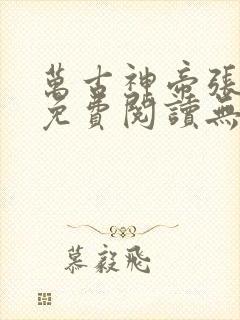 萬古神帝張
免費閱讀無
慕毅飛